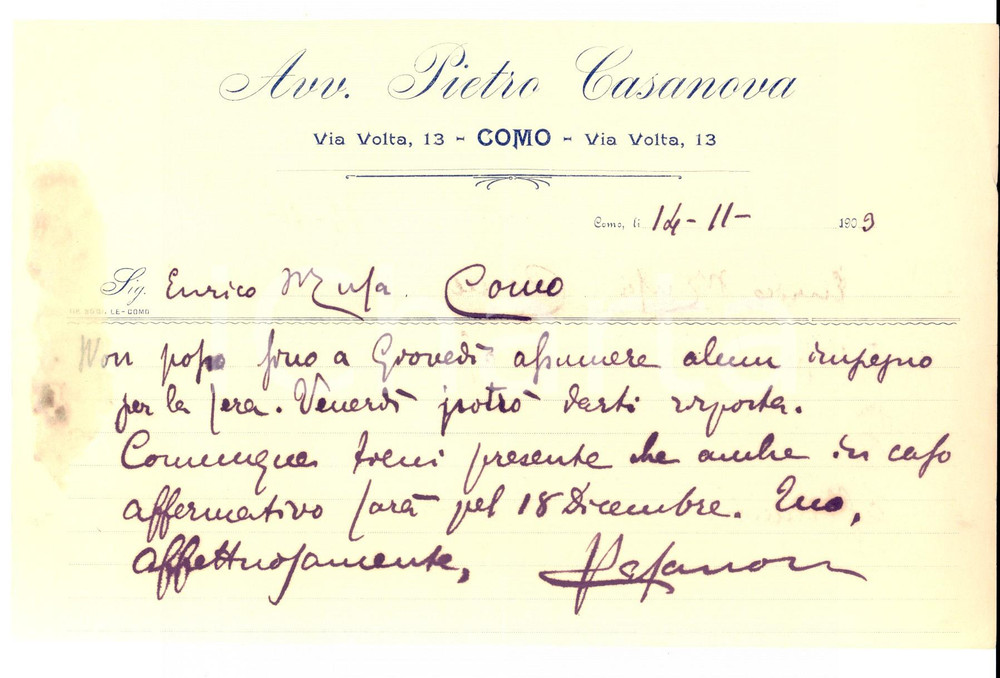 Avv. Pietro Casanova
Via Volta, 13 - COMO - Via Volta, 13
Como, li 14-11- 1909
Sig. Enrico Musa. Como
LE-COMO
Non posso fino a Giovedì assumere alcun impegno
per la sera. Venerdì potrò darti risposta.
Comunque tieni presente che anche in caso
affermativo sarà pel 18 Dicembre. Tuo,
affettuosamente,
PCasanova